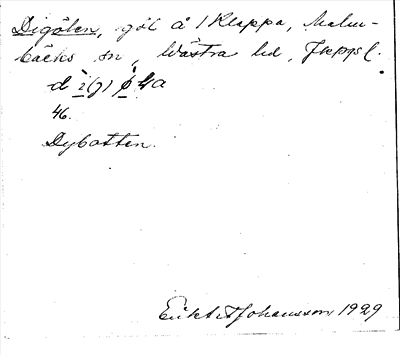 Digölen, göl å 1 Klappa, Malm-
bäcks sn, Västra hd, Jkpgs l.
46.
Dybotten.
Johansson 1929